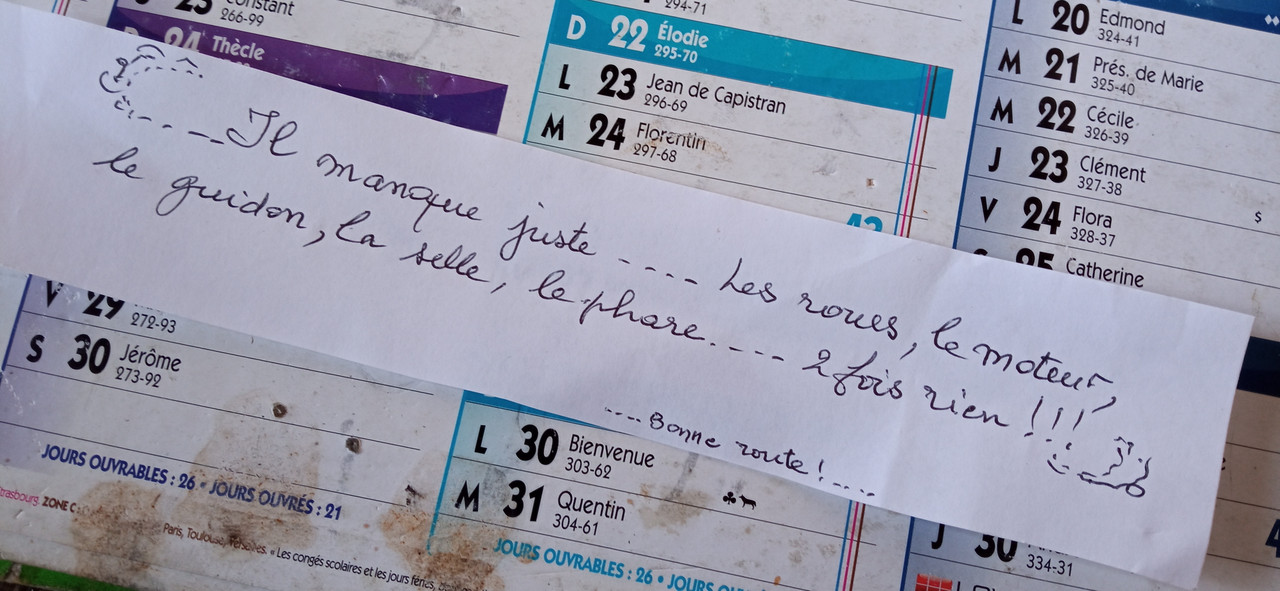 25 Constant
266-99
24 Thècle
294-71
D 22 Élodie
295-70
L 23 Jean de Capistran
296-69
M 24 Florentin
297-68
L 20 Edmond
324-41
M 21 Prés. de Marie
325-40
M 22 Cécile
326-39
J 23 Clément
327-38
V 24 Flora
328-37
25 Catherine
---- Il manque juste ---- Les roues, le moteur,
le guidon, la selle, le phare ---- 2 fois rien !!!
---- Bonne route ! ----
V 29
272-93
S 30 Jérôme
273-92
JOURS OUVRABLES : 26 • JOURS OUVRÉS : 21
Strasbourg. ZONE C :
Paris, Toulouse, Versailles. « Les congés scolaires et les jours fériés,
L 30 Bienvenue
303-62
M 31 Quentin
304-61
JOURS OUVRABLES : 26 • JOURS
J 30
334-31